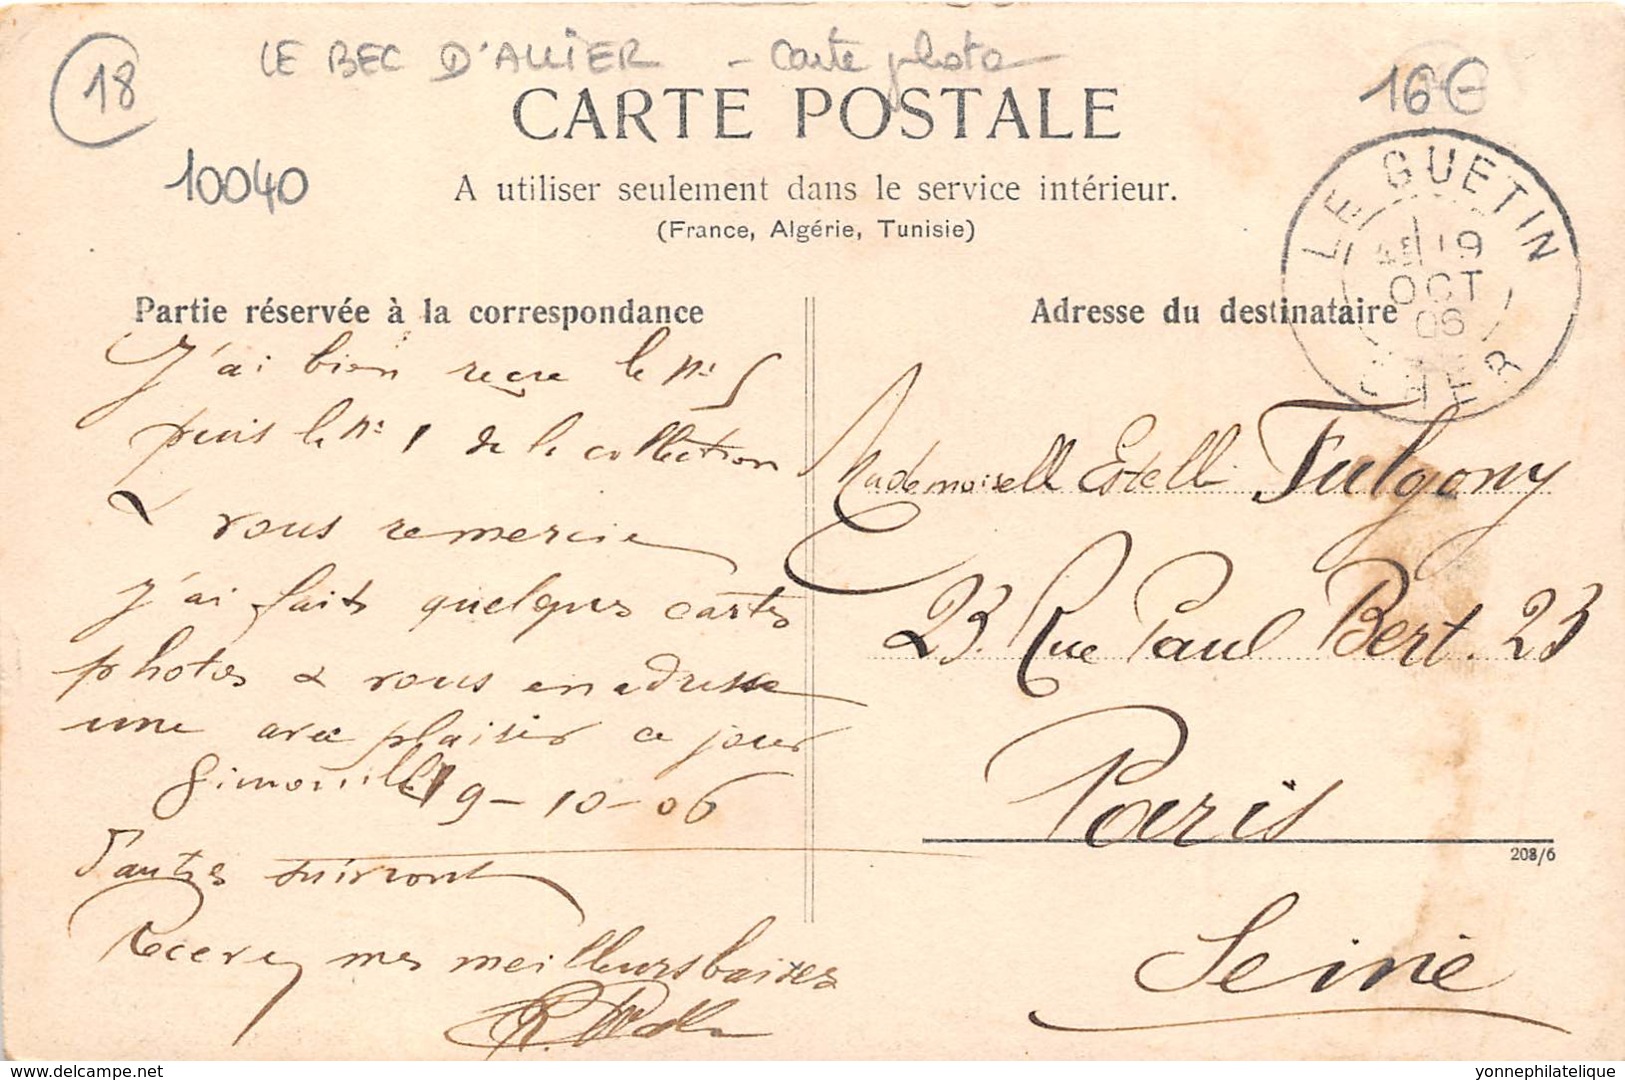 18
LE BEC D'ALLIER - Carte photo
16€
10040
CARTE POSTALE
A utiliser seulement dans le service intérieur.
(France, Algérie, Tunisie)
LE GUETIN
19
OCT
06
CHER
Partie réservée à la correspondance
J'ai bien reçu le n° 5
puis le n° 1 de la collection
& vous remercie
J'ai fait quelques cartes
photos & vous en adresse
une avec plaisir ce jour
Gimouille 19-10-06
D'autres suivront
Recevez mes meilleurs baisers
Adresse du destinataire
Mademoiselle Estelle Fulgony
23. Rue Paul Bert. 23
Paris
208/6
Seine
delcampe.net
yonnephilatelique